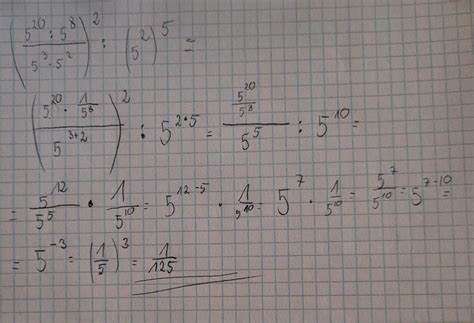 (5^20 : 5^8 / 5^3 · 5^2)^2 : (5^2)^5 =
(5^20 · 1/5^8 / 5^(3+2))^2 : 5^(2·5) = (5^20/5^8)/5^5 : 5^10 =
= 5^12/5^5 · 1/5^10 = 5^(12-5) · 1/5^10 = 5^7 · 1/5^10 = 5^7/5^10 = 5^(7-10) =
= 5^-3 = (1/5)^3 = 1/125